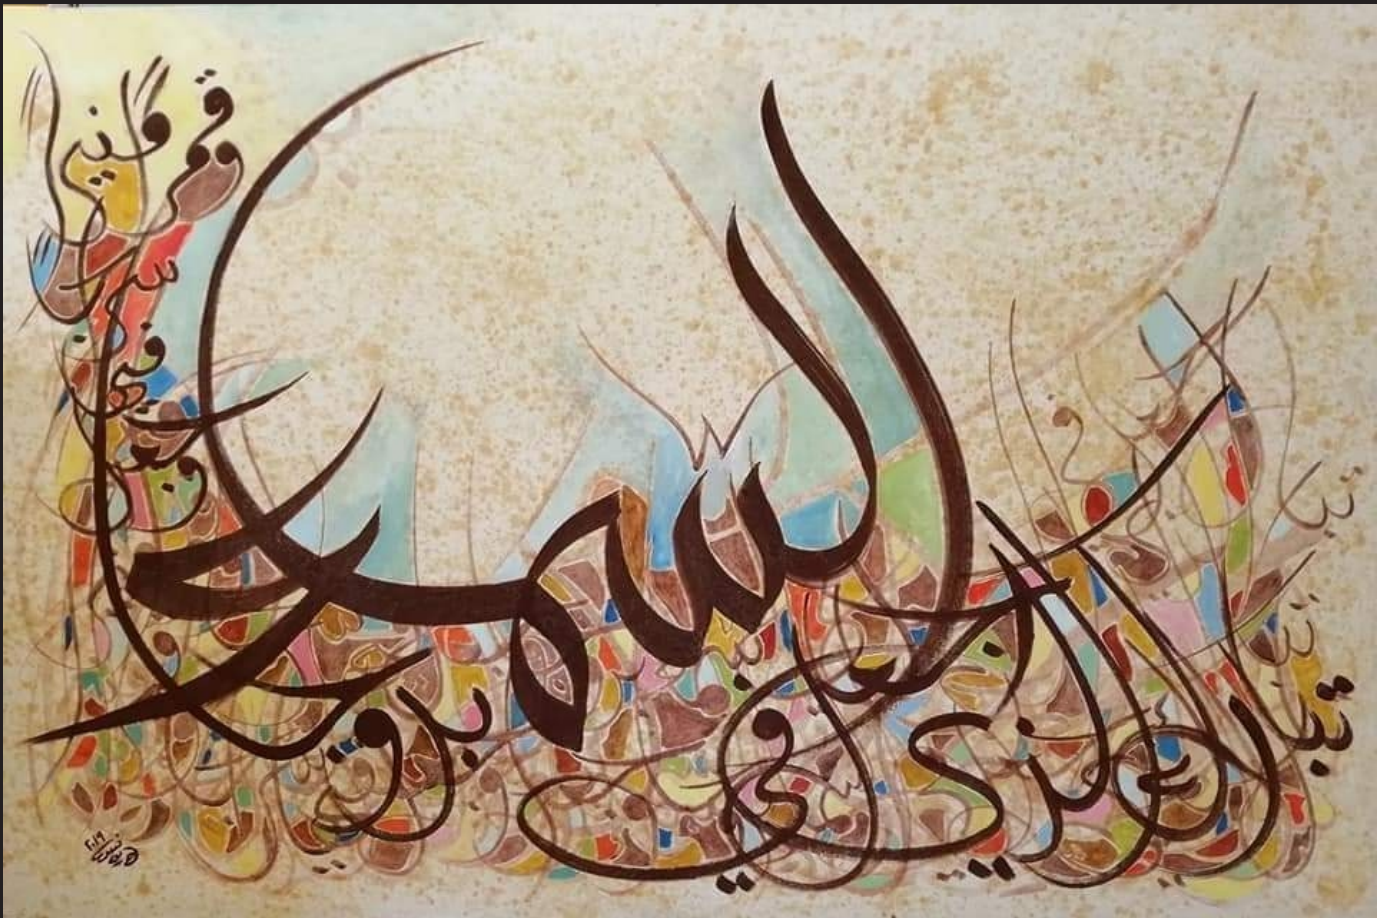 تبارك الذي جعل في
السماء
بروجا
وجعل
فيها
سراجا
وقمرا منيرا
٢٠١٩